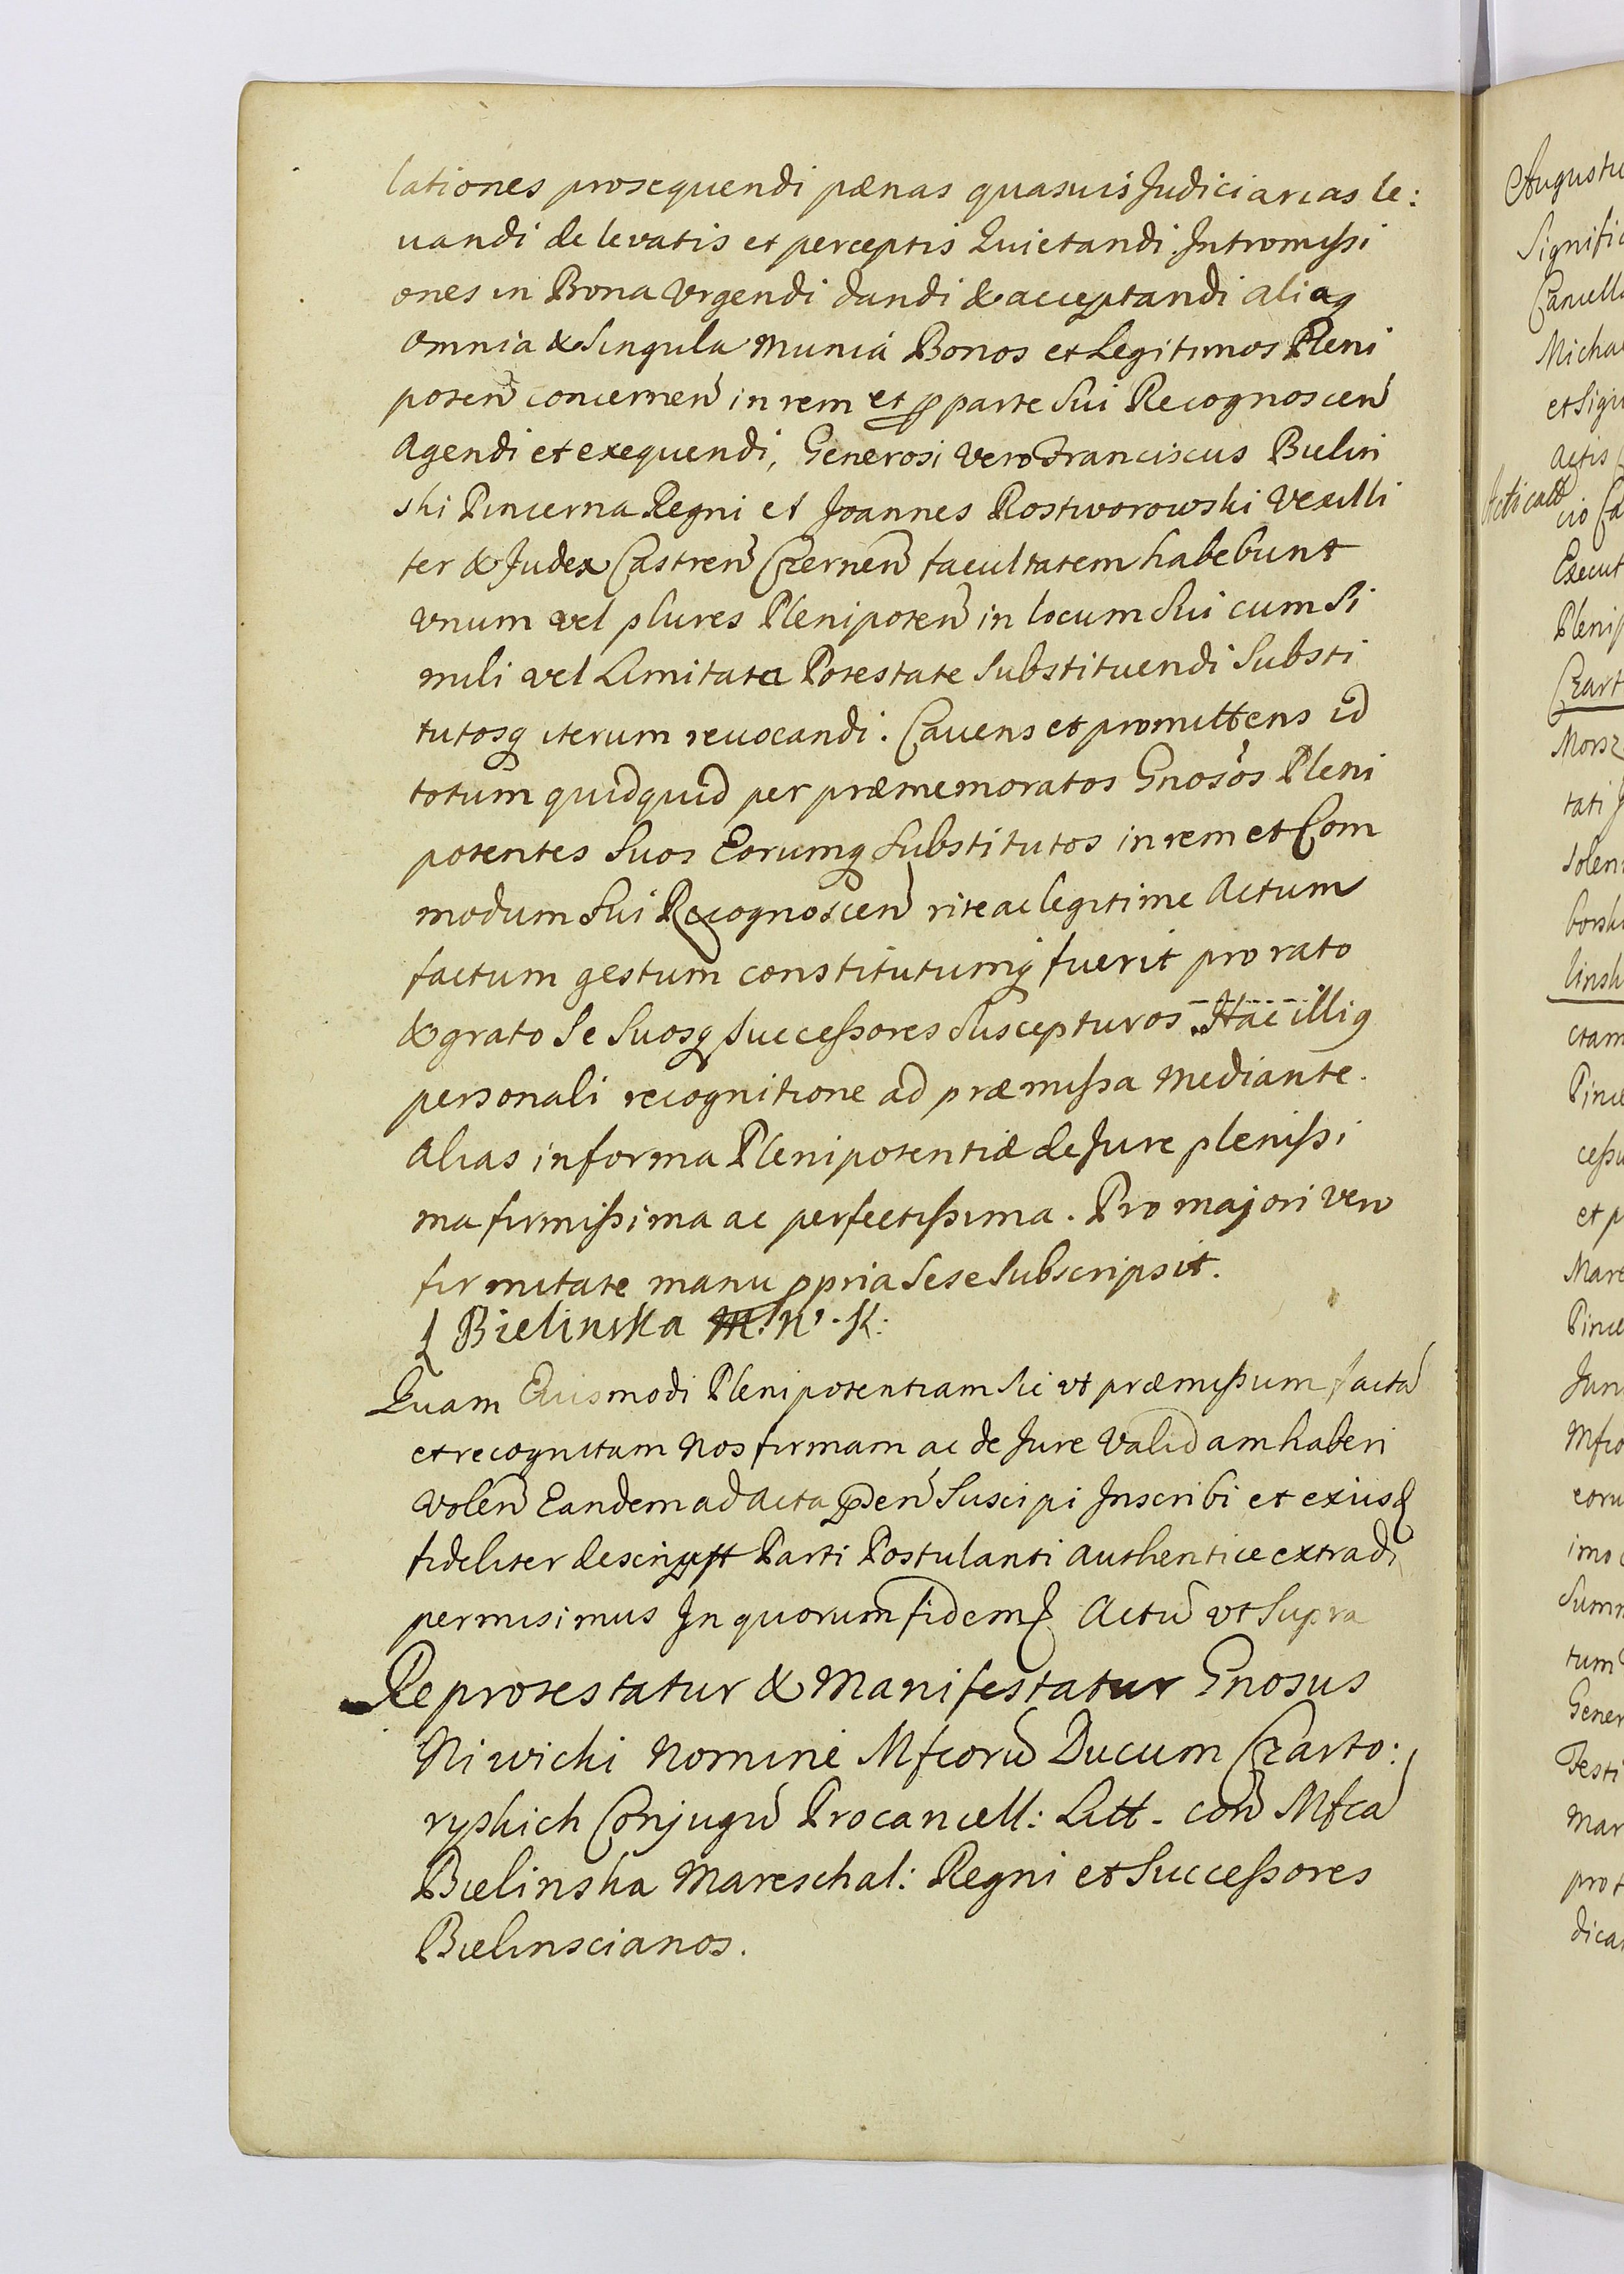 lationes prosequendi pænas quasuis Judiciarias le:
uandi de levatis et perceptis Quietandi Intromissi
ones in Bona Vrgendi dandi & acceptandi aliaq
omnia & Singula munia Bonos et Legitimos Pleni
poten concernen in rem et p parte Sui Recognoscen
Agendi et exequendi, Generosi vero Franciscus Bielin
ski Pincerna Regni et Joannes Rostworowski Vexilli
fer & Judex Castren Czernen facultatem habebunt
vnum vel plures Plenipoten in locum Sui cum Si
mili vel Limitata Potestate Substituendi Substi
tutosq iterum reuocandi. Cauens et promittens id
totum quidquid per præmemoratos Gnosos Pleni
potentes Suos Eorumq Substitutos in rem et Com
modum Sui Recognoscen rite ac legitime Actum
factum gestum constitutumq fuerit pro rato
& grato Se Suosq Successores Suscepturos. Hac illiq
personali recognitione ad præmissa mediante.
Alias in forma Plenipotentiæ de Jure plenissi
ma firmissima ac perfectissima. Pro majori vero
firmitate manu ppria Sese Subscripsit.
Bielinska M. N. K:
Quam Eiusmodi Plenipotentiam Sic vt præmissum facta
et recognitam Nos firmam ac de Jure Validam haberi
Volen Eandem ad Acta pden Suscipi Inscribi et exiusd
fideliter descript Parti Postulanti Authentice extradi
permisimus In quorum fidem Actu vt Supra
Reprotestatur & Manifestatur Gnosus
Niwicki Nomine Mfcoru Ducum Czarto:
ryskich Conjugu Procancell: Litt. con Mfca
Bielinska Mareschal: Regni et Successores
Bielinscianos.
Augustu
Signific
Cancella
Micha
et Sigi
Actis
Acticatt
cio Ca
Execut
Plenip
Czart
Morsz
tati J
Solen
borski
linsk
ctam
Pince
cessu
et p
Mare
Pince
Jun
Mfco
eoru
imo
Summ
tum
Gener
Testi
Mar
prot
dica